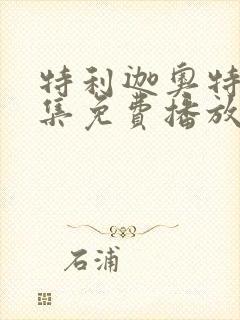 特利迦奥特
集免費播放
石浦